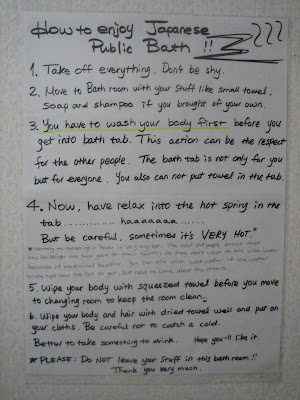 How to enjoy Japanese
Public Bath !!
1. Take off everything. Don't be shy.
2. Move to Bath room with your Stuff like small towel,
soap and shampoo if you brought of your own.
3. You have to wash your body first before you
get into bath tab. This action can be the respect
for the other people. The bath tab is not only for you
but for everyone. You also can not put towel in the tab.
4. Now, have relax into the hot spring in the
tab ............. haaaaaaa ......
But be careful, sometimes it's VERY HOT*
5. Wipe your body with squeezed towel before you move
to changing room to keep the room clean.
6. Wipe your body and hair with dried towel well and put on
your cloths. Be careful not to catch a cold.
Better to take something to drink. Hope you'll like it.
* PLEASE: DO NOT leave your Stuff in this bath room !!
Thank you very much.